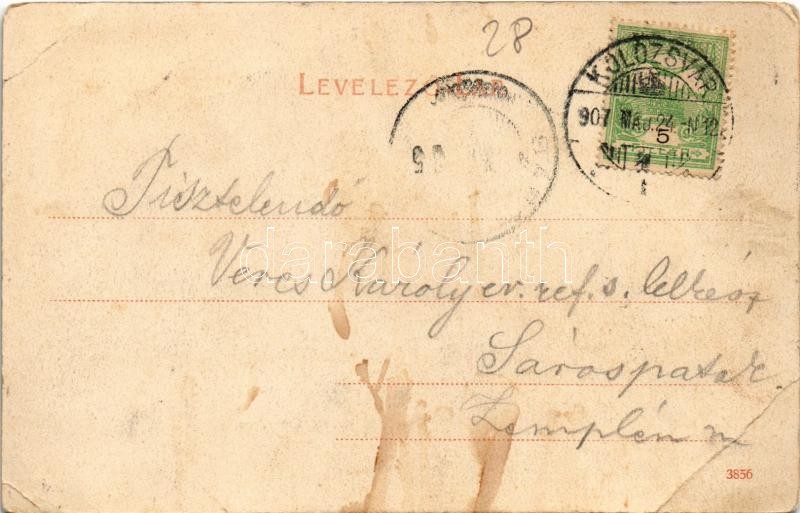 28
KOLOZSVÁR
907 MÁJ. 24. N12
5
Tisztelendő
Veres Károly ev. ref. s. lelkész
Sárospatak
Zemplén m
darabanth
3856